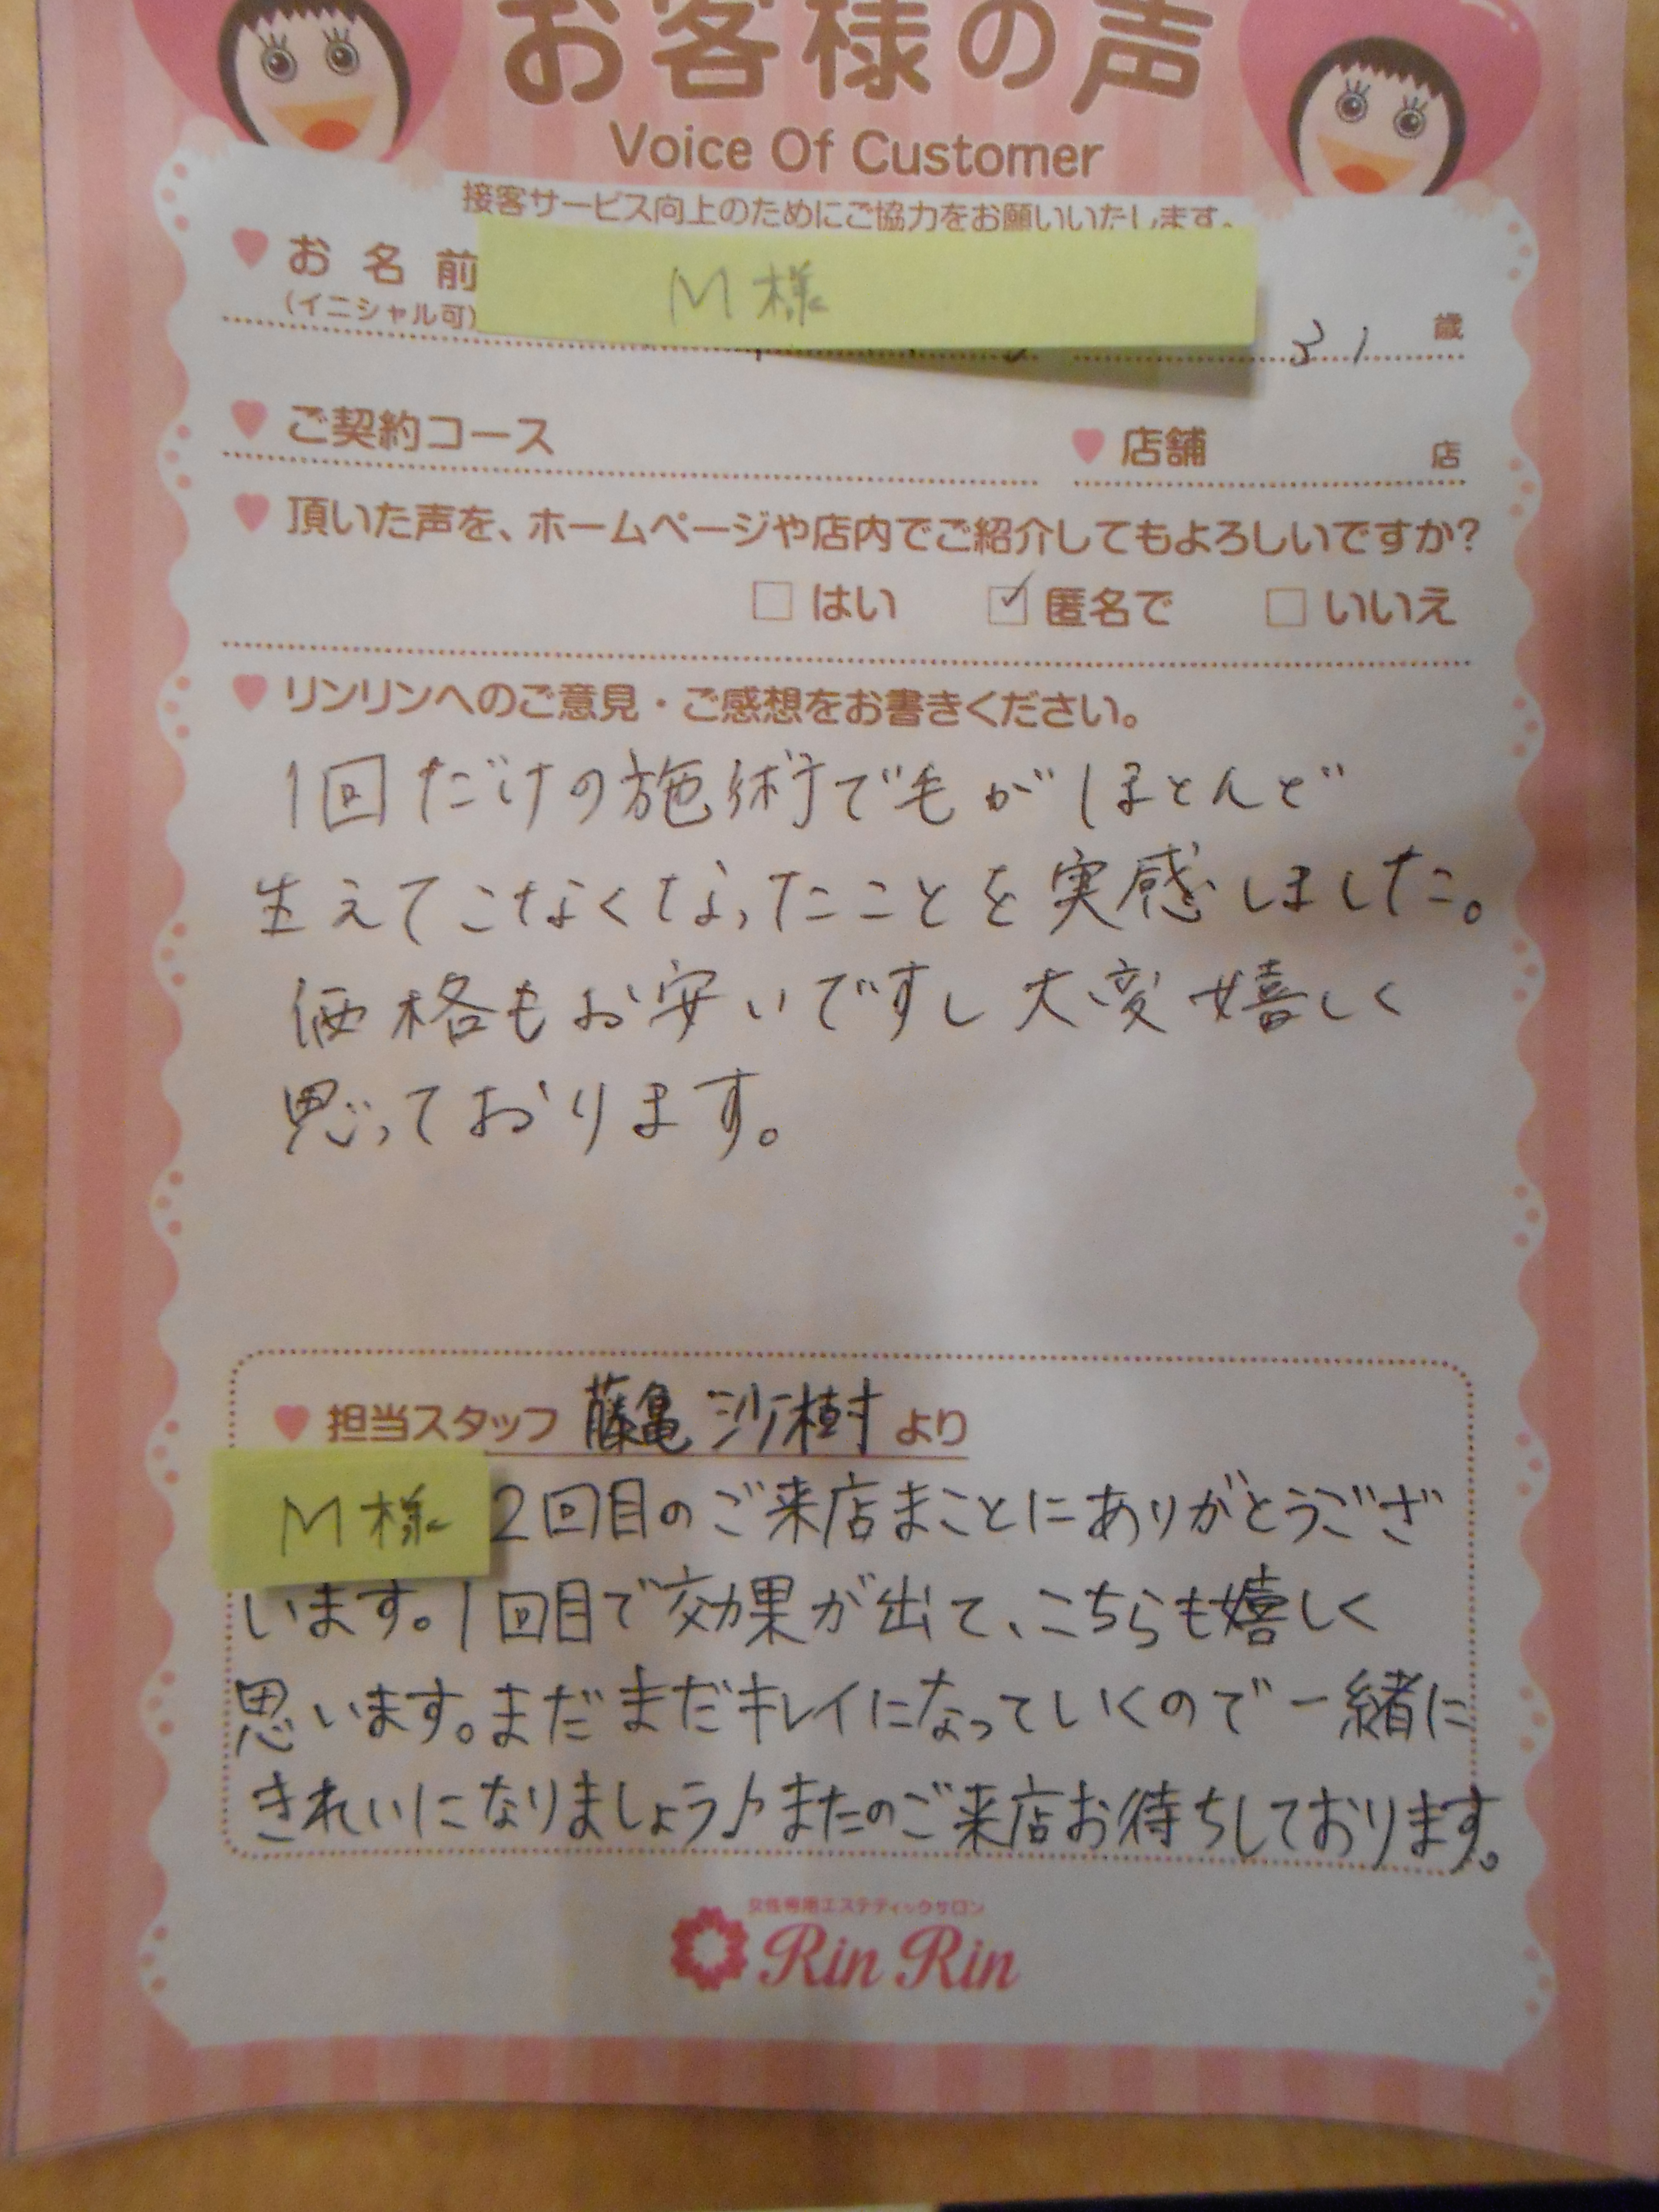 お客様の声
Voice Of Customer
接客サービス向上のためにご協力をお願いいたします。
お名前 M様
(イニシャル可) 31 歳
ご契約コース 店舗 店
頂いた声を、ホームページや店内でご紹介してもよろしいですか?
はい 匿名で いいえ
リンリンへのご意見・ご感想をお書きください。
1回だけの施術で毛がほとんど
生えてこなくなったことを実感しました。
価格もお安いですし大変嬉しく
思っております。
担当スタッフ 藤亀 沙樹 より
M様 2回目のご来店まことにありがとうござ
います。1回目で効果が出て、こちらも嬉しく
思います。まだまだキレイになっていくので一緒に
きれいになりましょう♪またのご来店お待ちしております。
女性専用エステティックサロン
Rin Rin